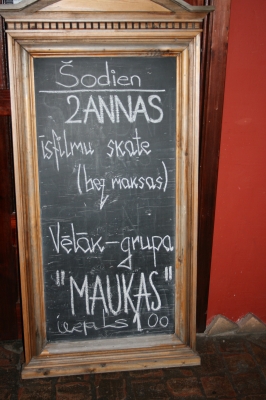 Šodien
2ANNAS
īsfilmu skate
(bez maksas)
Vēlāk-grupa
"MAUKAS"
ieeja Ls 1,00